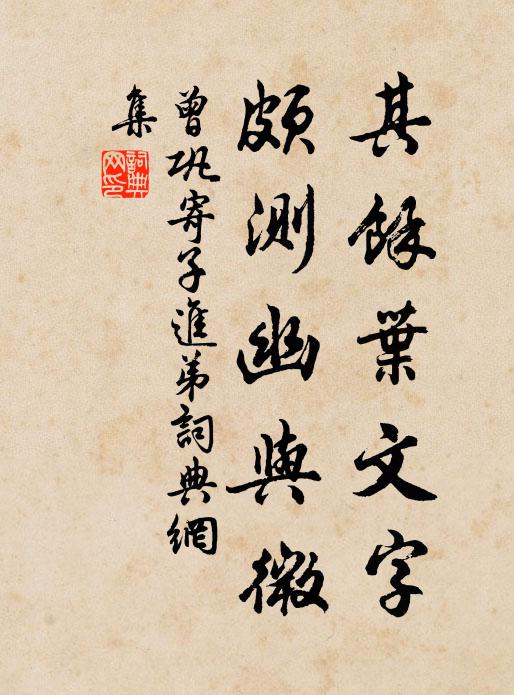 其餘葉文字
頗測幽與微
曾巩寄子進弟詞典網
集
詞典網印